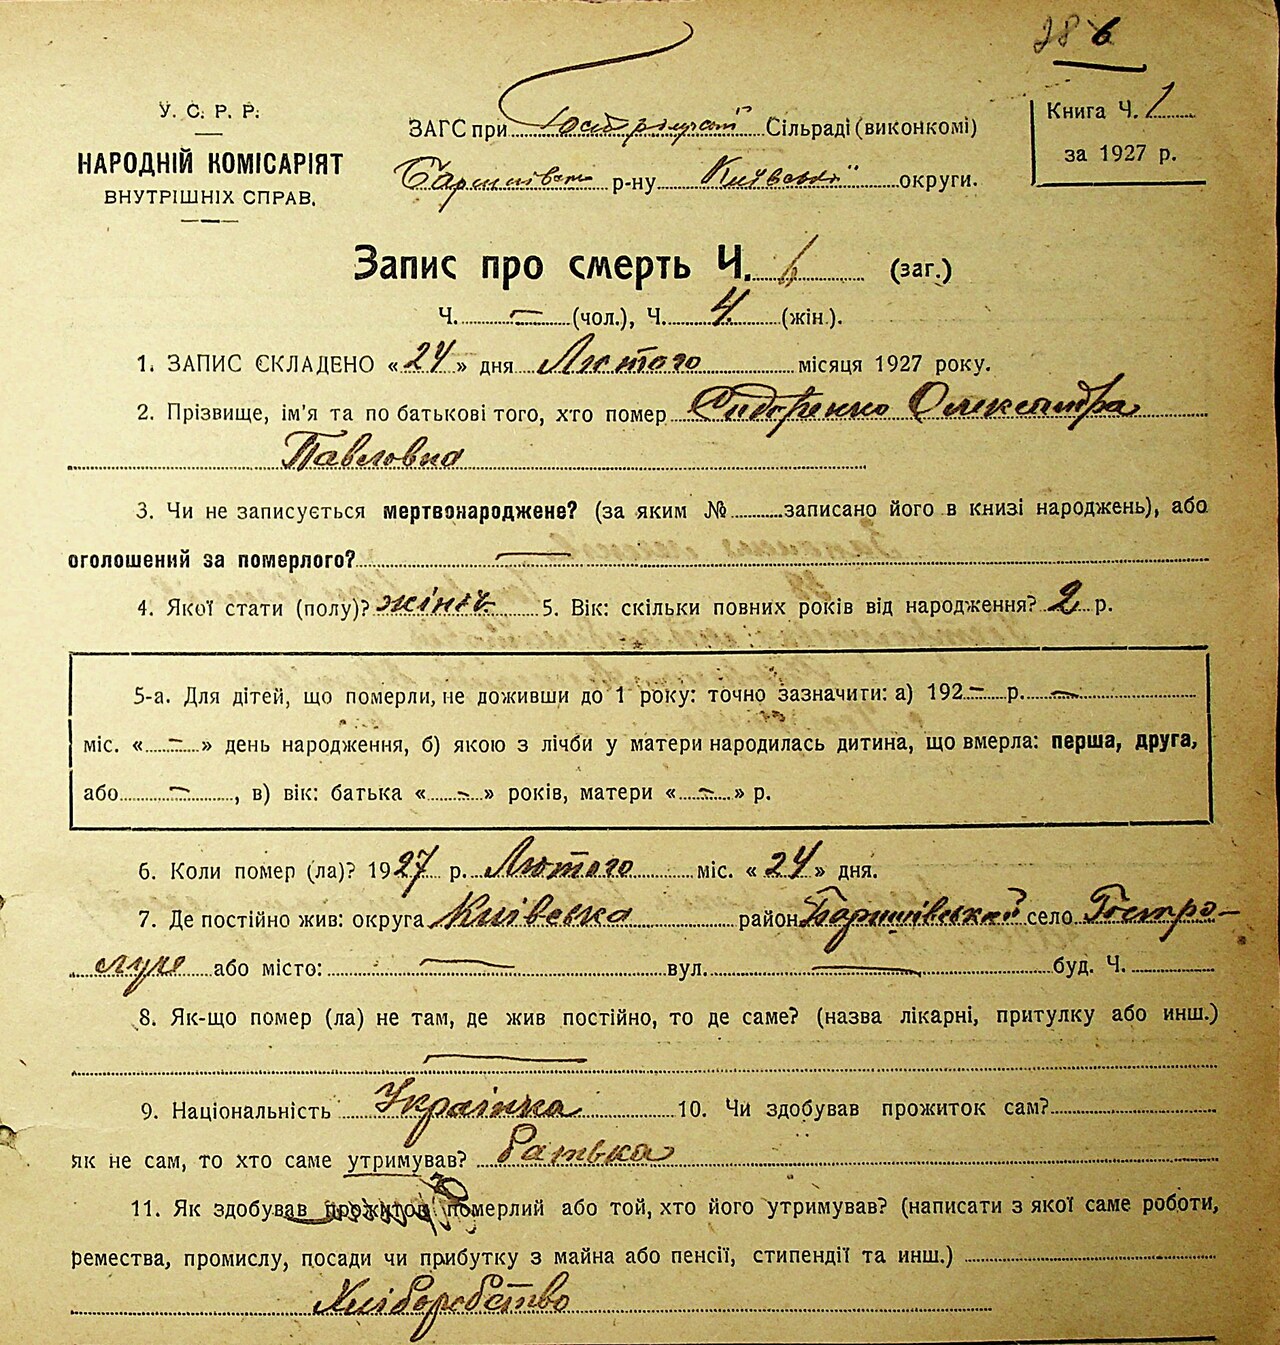 28 6
У. С. Р. Р.
НАРОДНІЙ КОМІСАРІЯТ
ВНУТРІШНІХ СПРАВ.
ЗАГС при Сільраді (виконкомі)
р-ну Київської округи.
Книга Ч. 1
за 1927 р.
Запис про смерть Ч. 6 (заг.)
Ч. — (чол.), Ч. 4 (жін.).
1. ЗАПИС ЄКЛАДЕНО «24» дня Лютого місяця 1927 року.
2. Прізвище, ім'я та по батькові того, хто помер Сидоренко Олександра
Павловна
3. Чи не записується мертвонароджене? (за яким № записано його в книзі народжень), або
оголошений за померлого? —
4. Якої стати (полу)? жіноч. 5. Вік: скільки повних років від народження? 2 р.
5-а. Для дітей, що померли, не доживши до 1 року: точно зазначити: а) 192— р. —
міс. «—» день народження, б) якою з лічби у матери народилась дитина, що вмерла: перша, друга,
або —, в) вік: батька «—» років, матери «—» р.
6. Коли помер (ла)? 1927 р. Лютого міс. «24» дня.
7. Де постійно жив: округа Київська район Баришівський село Гостро-
луче або місто: — вул. — буд. Ч.
8. Як-що помер (ла) не там, де жив постійно, то де саме? (назва лікарні, притулку або инш.)
—
9. Національність Українка 10. Чи здобував прожиток сам?
як не сам, то хто саме утримував? батька
11. Як здобував прожиток померлий або той, хто його утримував? (написати з якої саме роботи,
ремества, промислу, посади чи прибутку з майна або пенсії, стипендії та инш.)
Хліборобство